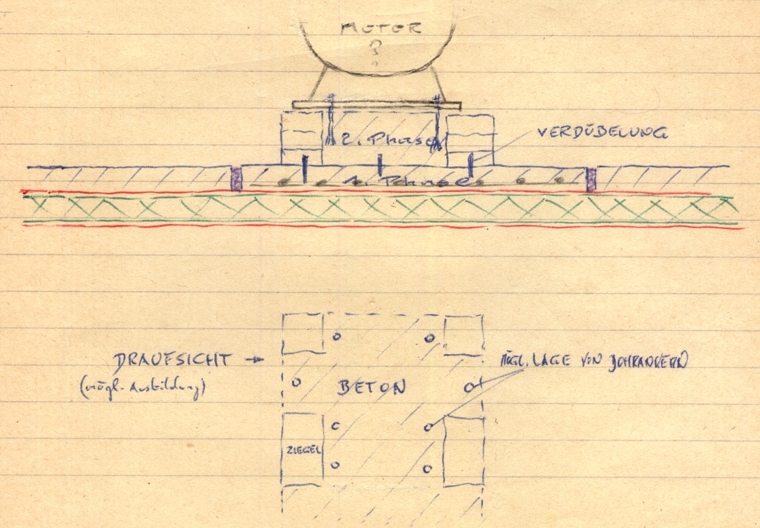 MOTOR
?
2. Phase
VERDÜBELUNG
1. Phase
DRAUFSICHT
(mögl. Ausbildung)
MÖGL. LAGE VON BOHRANKERN
BETON
ZIEGEL